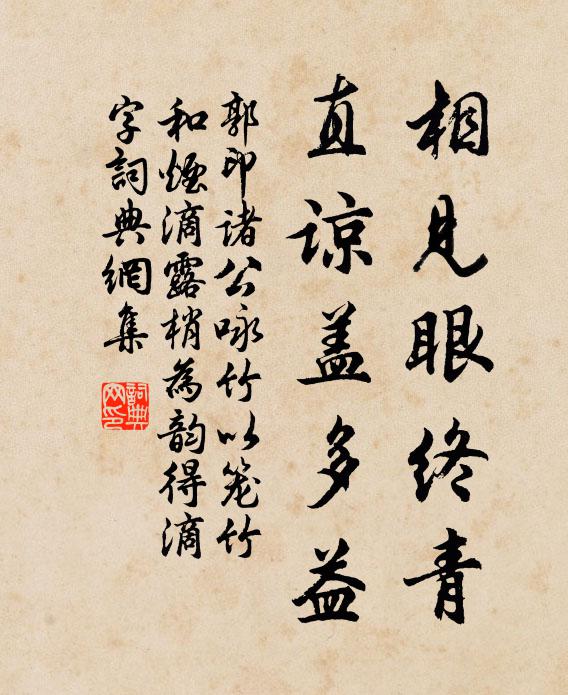 相见眼终青
直谅盖多益
郭印诸公咏竹以笼竹
和烟滴露梢为韵得滴
字詞典網集
詞典
网印